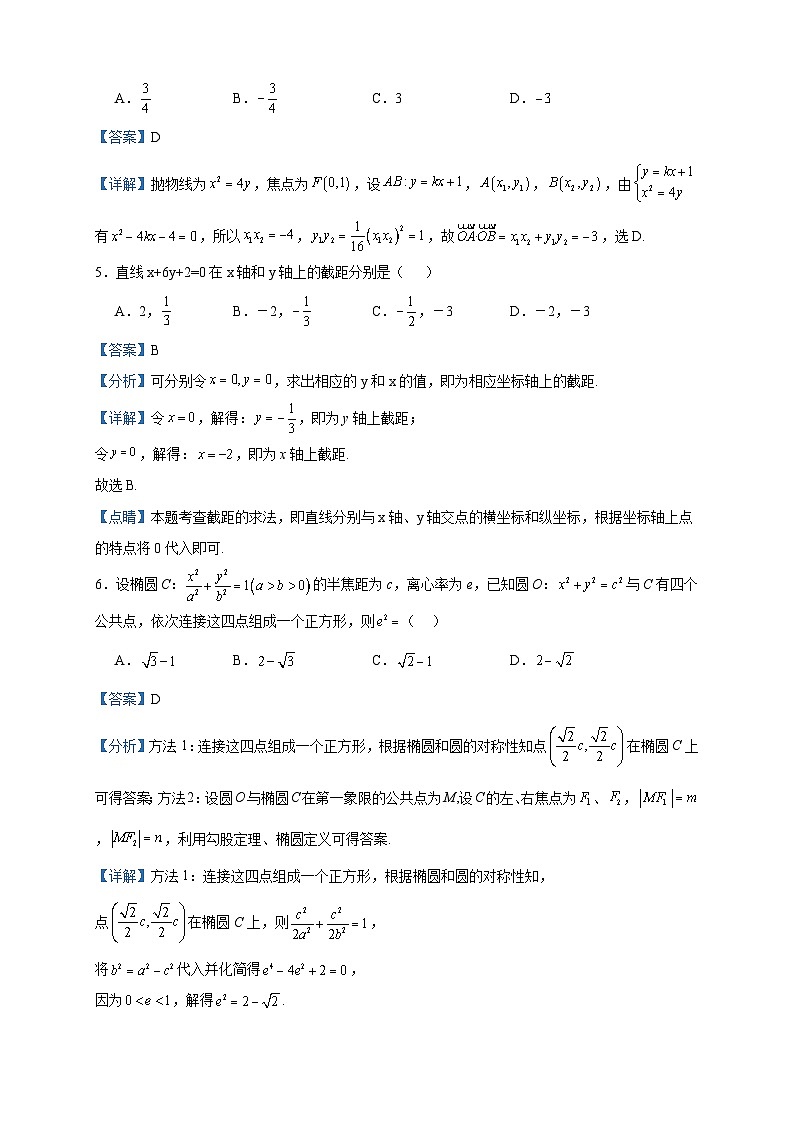 A. 3/4 B. -3/4 C. 3 D. -3
【答案】D
【详解】抛物线为 x² = 4y ,焦点为 F(0,1) ,设 AB: y = kx+1 , A(x₁,y₁) , B(x₂,y₂) ,由 { y = kx+1 x² = 4y
有 x² - 4kx - 4 = 0 ,所以 x₁x₂ = -4 , y₁y₂ = 1/16 (x₁x₂)² = 1 ,故 OA·OB = x₁x₂ + y₁y₂ = -3 ,选 D.
5.直线 x+6y+2=0 在 x 轴和 y 轴上的截距分别是( )
A.2, 1/3 B.-2, -1/3 C. -1/2 ,-3 D.-2,-3
【答案】B
【分析】可分别令 x = 0, y = 0 ,求出相应的 y 和 x 的值,即为相应坐标轴上的截距.
【详解】令 x = 0 ,解得: y = -1/3 ,即为 y 轴上截距;
令 y = 0 ,解得: x = -2 ,即为 x 轴上截距.
故选 B.
【点睛】本题考查截距的求法,即直线分别与 x 轴、y 轴交点的横坐标和纵坐标,根据坐标轴上点
的特点将 0 代入即可.
6.设椭圆 C: x²/a² + y²/b² = 1(a > b > 0) 的半焦距为 c,离心率为 e,已知圆 O: x² + y² = c² 与 C 有四个
公共点,依次连接这四点组成一个正方形,则 e² = ( )
A. √3 - 1 B. 2 - √3 C. √2 - 1 D. 2 - √2
【答案】D
【分析】方法 1:连接这四点组成一个正方形,根据椭圆和圆的对称性知点 (√2/2 c, √2/2 c) 在椭圆 C 上
可得答案; 方法 2:设圆 O 与椭圆 C 在第一象限的公共点为 M,设 C 的左、右焦点为 F₁ 、 F₂ , |MF₁| = m
, |MF₂| = n ,利用勾股定理、椭圆定义可得答案.
【详解】方法 1:连接这四点组成一个正方形,根据椭圆和圆的对称性知,
点 (√2/2 c, √2/2 c) 在椭圆 C 上,则 c²/2a² + c²/2b² = 1 ,
将 b² = a² - c² 代入并化简得 e⁴ - 4e² + 2 = 0 ,
因为 0 < e < 1 ,解得 e² = 2 - √2 .